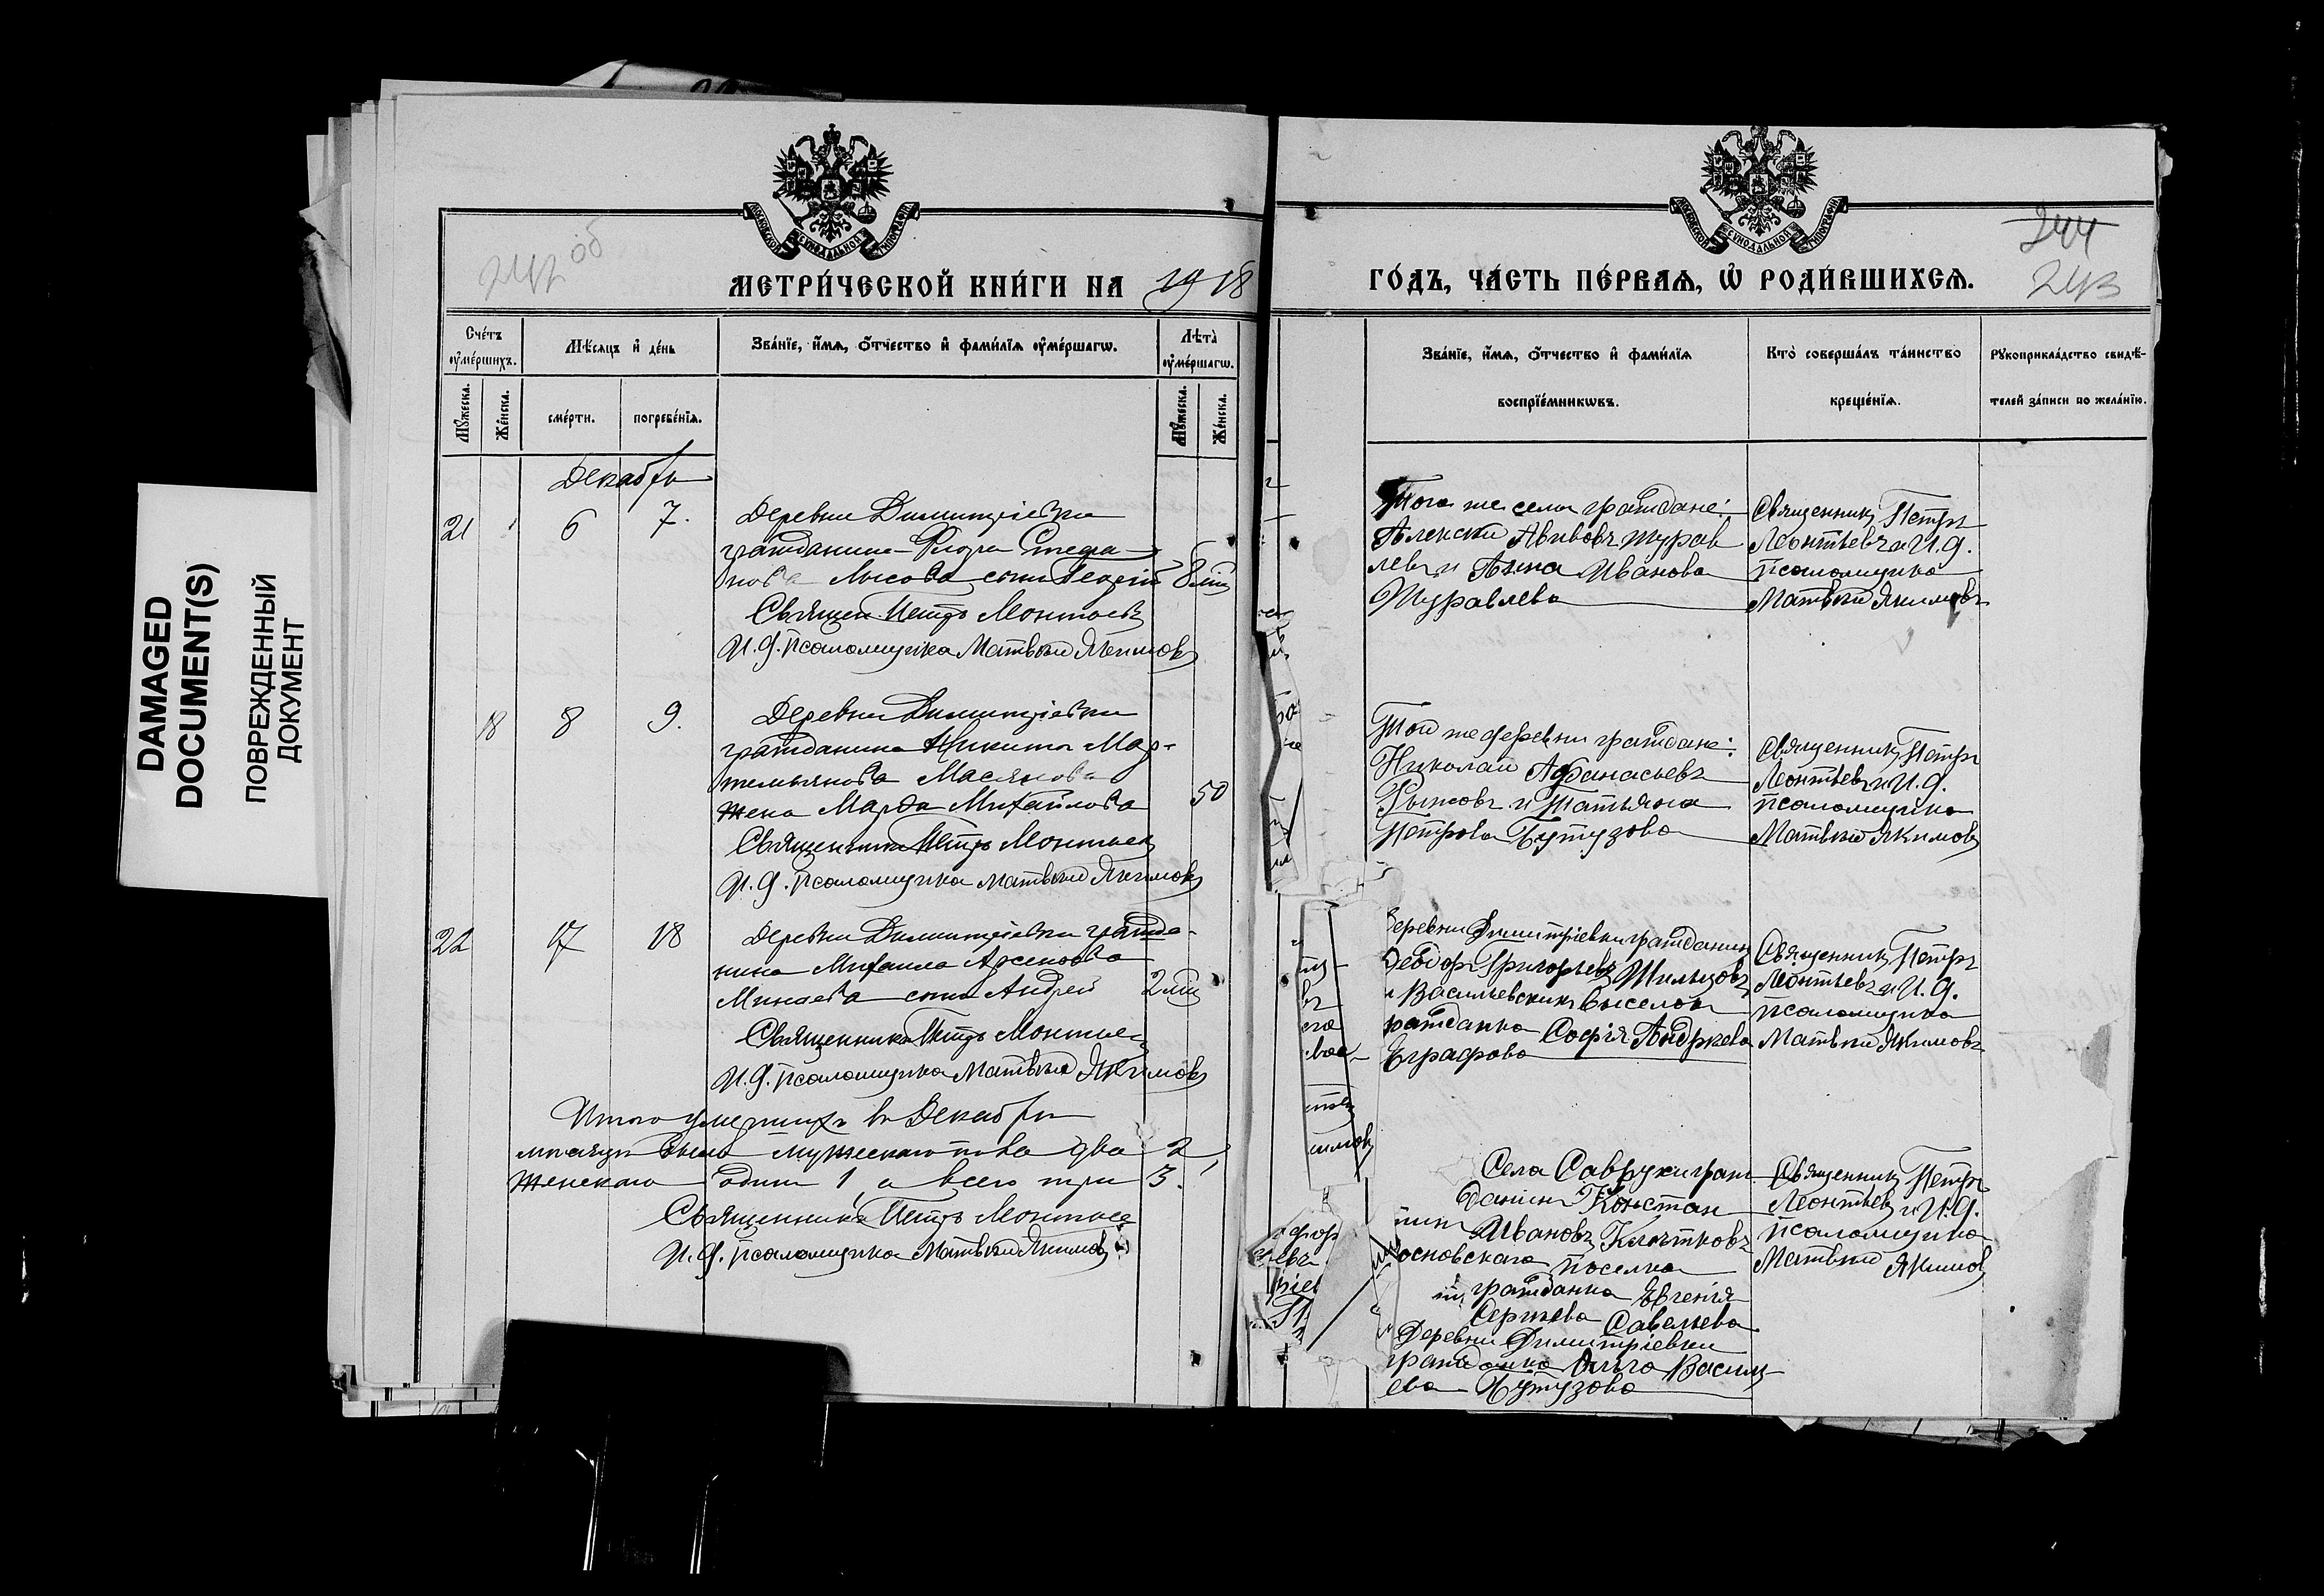 DAMAGED
DOCUMENT(S)
ПОВРЕЖДЕННЫЙ
ДОКУМЕНТ
242 об
МОСКОВСКОЙ СѴНОДАЛЬНОЙ ТИПОГРАФІИ
МЕТРИ́ЧЕСКОЙ КНИ́ГИ НА 1918
Сче́тъ ᲂу҆ме́ршихъ.
Мѣ́сяцъ и҆ де́нь
Зва́нїе, и҆́мѧ, ѻ҆́тчество и҆ фами́лїѧ ᲂу҆ме́ршагѡ.
Лѣта̀ ᲂу҆ме́ршагѡ.
Мꙋ́жеска.
Же́нска.
сме́рти.
погребе́нїѧ.
Мꙋ́жеска.
Же́нска.
Декабрь
21 6 7. Деревни Димитріевки
гражданина Флора Стефа-
нова Лысова сынъ Георгій 8 лѣтъ
Священ. Петръ Леонтьевъ
И.д. псаломщика Матвѣй Якимовъ
18 8 9. Деревни Димитріевки
гражданина Никиты Мар-
темьянова Масянова
жена Марѳа Михайлова 50
Священникъ Петръ Леонтьевъ
И.д. псаломщика Матвѣй Якимовъ
22 17 18 Деревни Димитріевки гражда-
нина Михаила Арсенова
Минаева сынъ Андрей 2 лѣтъ
Священникъ Петръ Леонтьевъ
И.д. псаломщика Матвѣй Якимовъ
Итого умершихъ въ Декабрѣ
мѣсяцѣ было мужескаго пола два 2,
женскаго одинъ 1, а всего три 3.
Священникъ Петръ Леонтьевъ
И.д. псаломщика Матвѣй Якимовъ
МОСКОВСКОЙ СѴНОДАЛЬНОЙ ТИПОГРАФІИ
244
243
ГО́ДЪ, ЧА́СТЬ ПЕ́РВАѦ, Ѽ РОДИ́ВШИХСѦ.
Зва́нїе, и҆́мѧ, ѻ҆́тчество и҆ фами́лїѧ
воспрїе́мникѡвъ.
Кто̀ соверша́лъ та́инство
креще́нїѧ.
Рꙋкоприкла́дство свидѣ́-
телей за́писи по жела́нїю.
Того же села граждане:
Алексѣй Авивовъ Журав
левъ и Анна Иванова
Журавлева
Священникъ Петръ
Леонтьевъ и И.д.
псаломщика
Матвѣй Якимовъ
Той же деревни граждане:
Николай Афанасьевъ
Рыжовъ и Татьяна
Петрова Бутузова
Священникъ Петръ
Леонтьевъ и И.д.
псаломщика
Матвѣй Якимовъ
Деревни Димитріевки гражданинъ
Ѳеодоръ Григорьевъ Жильцовъ
и Васильевскихъ выселокъ
гражданка Софія Андреева
Евграфова
Священникъ Петръ
Леонтьевъ и И.д.
псаломщика
Матвѣй Якимовъ
Села Савруки граж
данинъ Констан
тинъ Ивановъ
основскаго поселка
гражданка Евгенія
Сергѣева Савельева
Деревни Димитріевки
гражданка Ольга Василь
ева Бутузова
Священникъ Петръ
Леонтьевъ и И.д.
псаломщика
Матвѣй Якимовъ